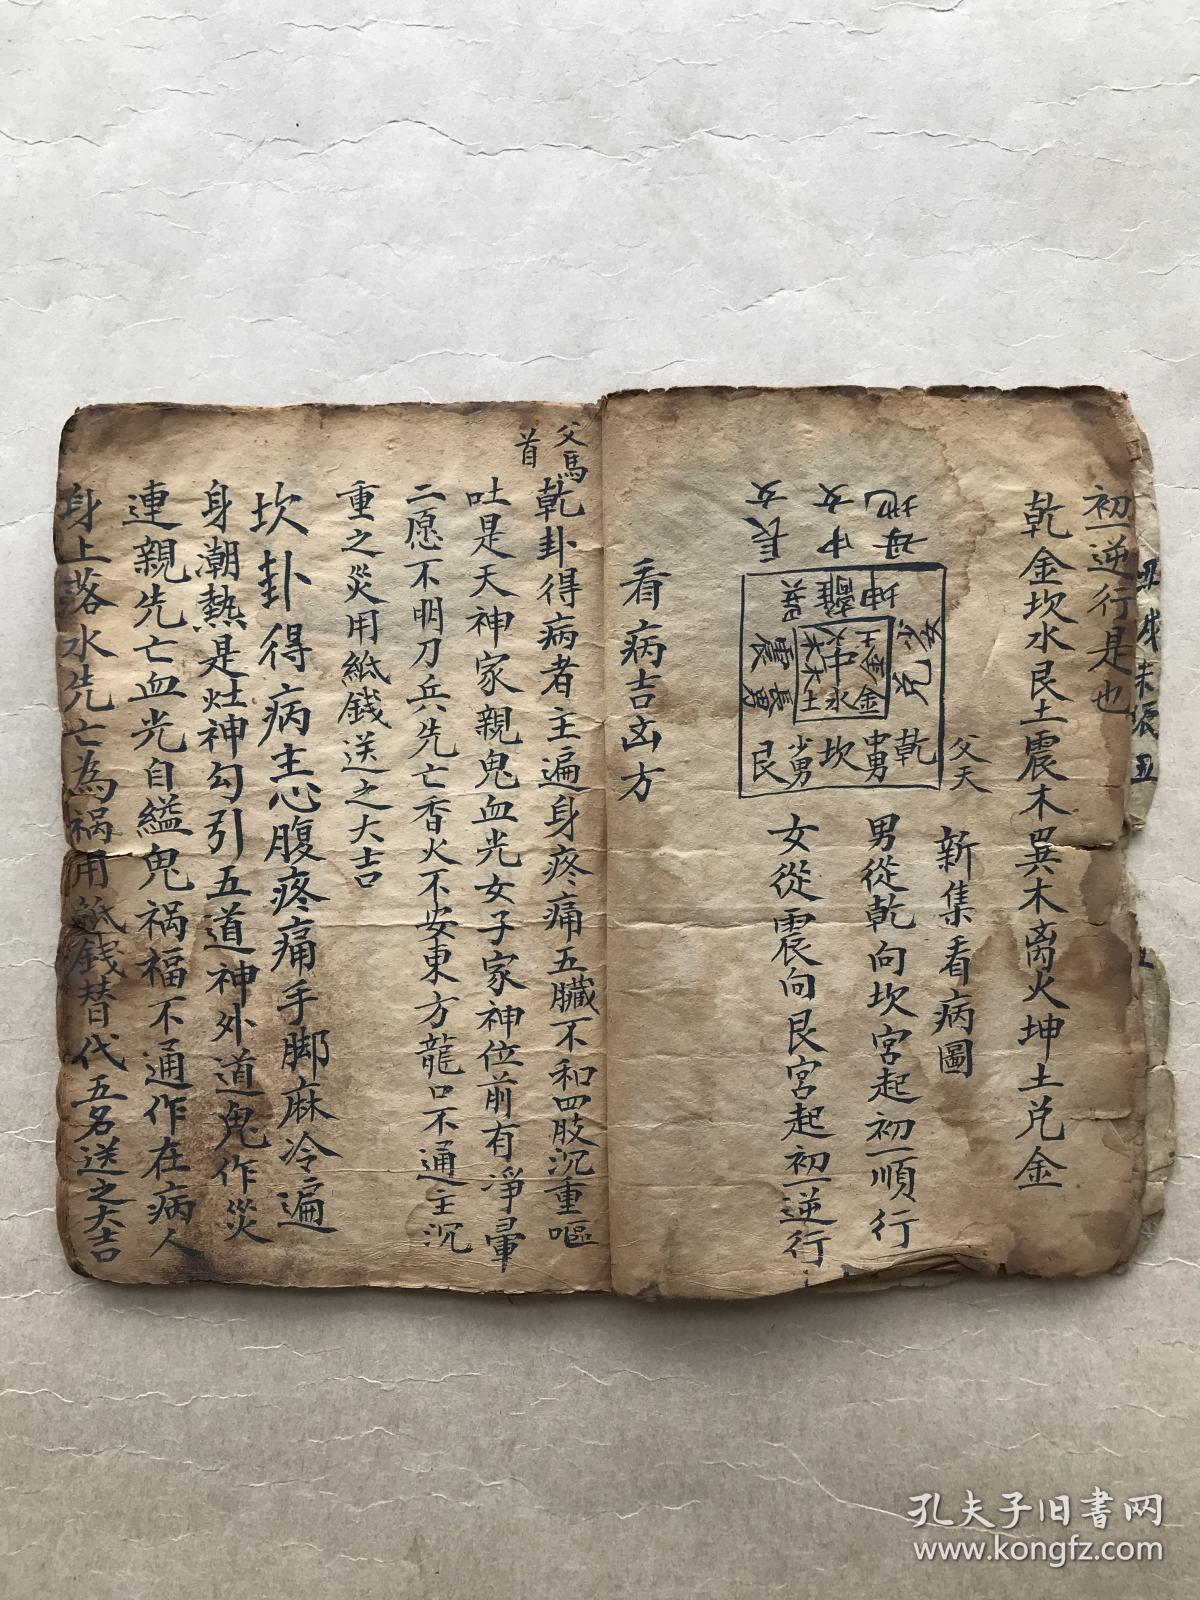 初一逆行是也
乾金坎水艮土震木巽木离火坤土兑金
新集看病圖
男從乾向坎宫起初一順行
女從震向艮宫起初一逆行
父天
母地
中女
長女
坤離巽
兑少女
震長男
中
金水土
乾中男坎少男艮
看病吉凶方
父馬
首
乾卦得病者主遍身疼痛五臟不和四肢沉重嘔
吐是天神家親鬼血光女子家神位前有淨暈
二愿不明刀兵先亡香火不安東方龍口不通主沉
重之災用紙錢送之大吉
坎卦得病主心腹疼痛手脚麻冷遍
身潮熱是灶神勾引五道神外道鬼作災
連親先亡血光自縊鬼祸福不通作在病人
身上落水先亡為祸用紙錢替代五名送之大吉
孔夫子旧书网
www.kongfz.com